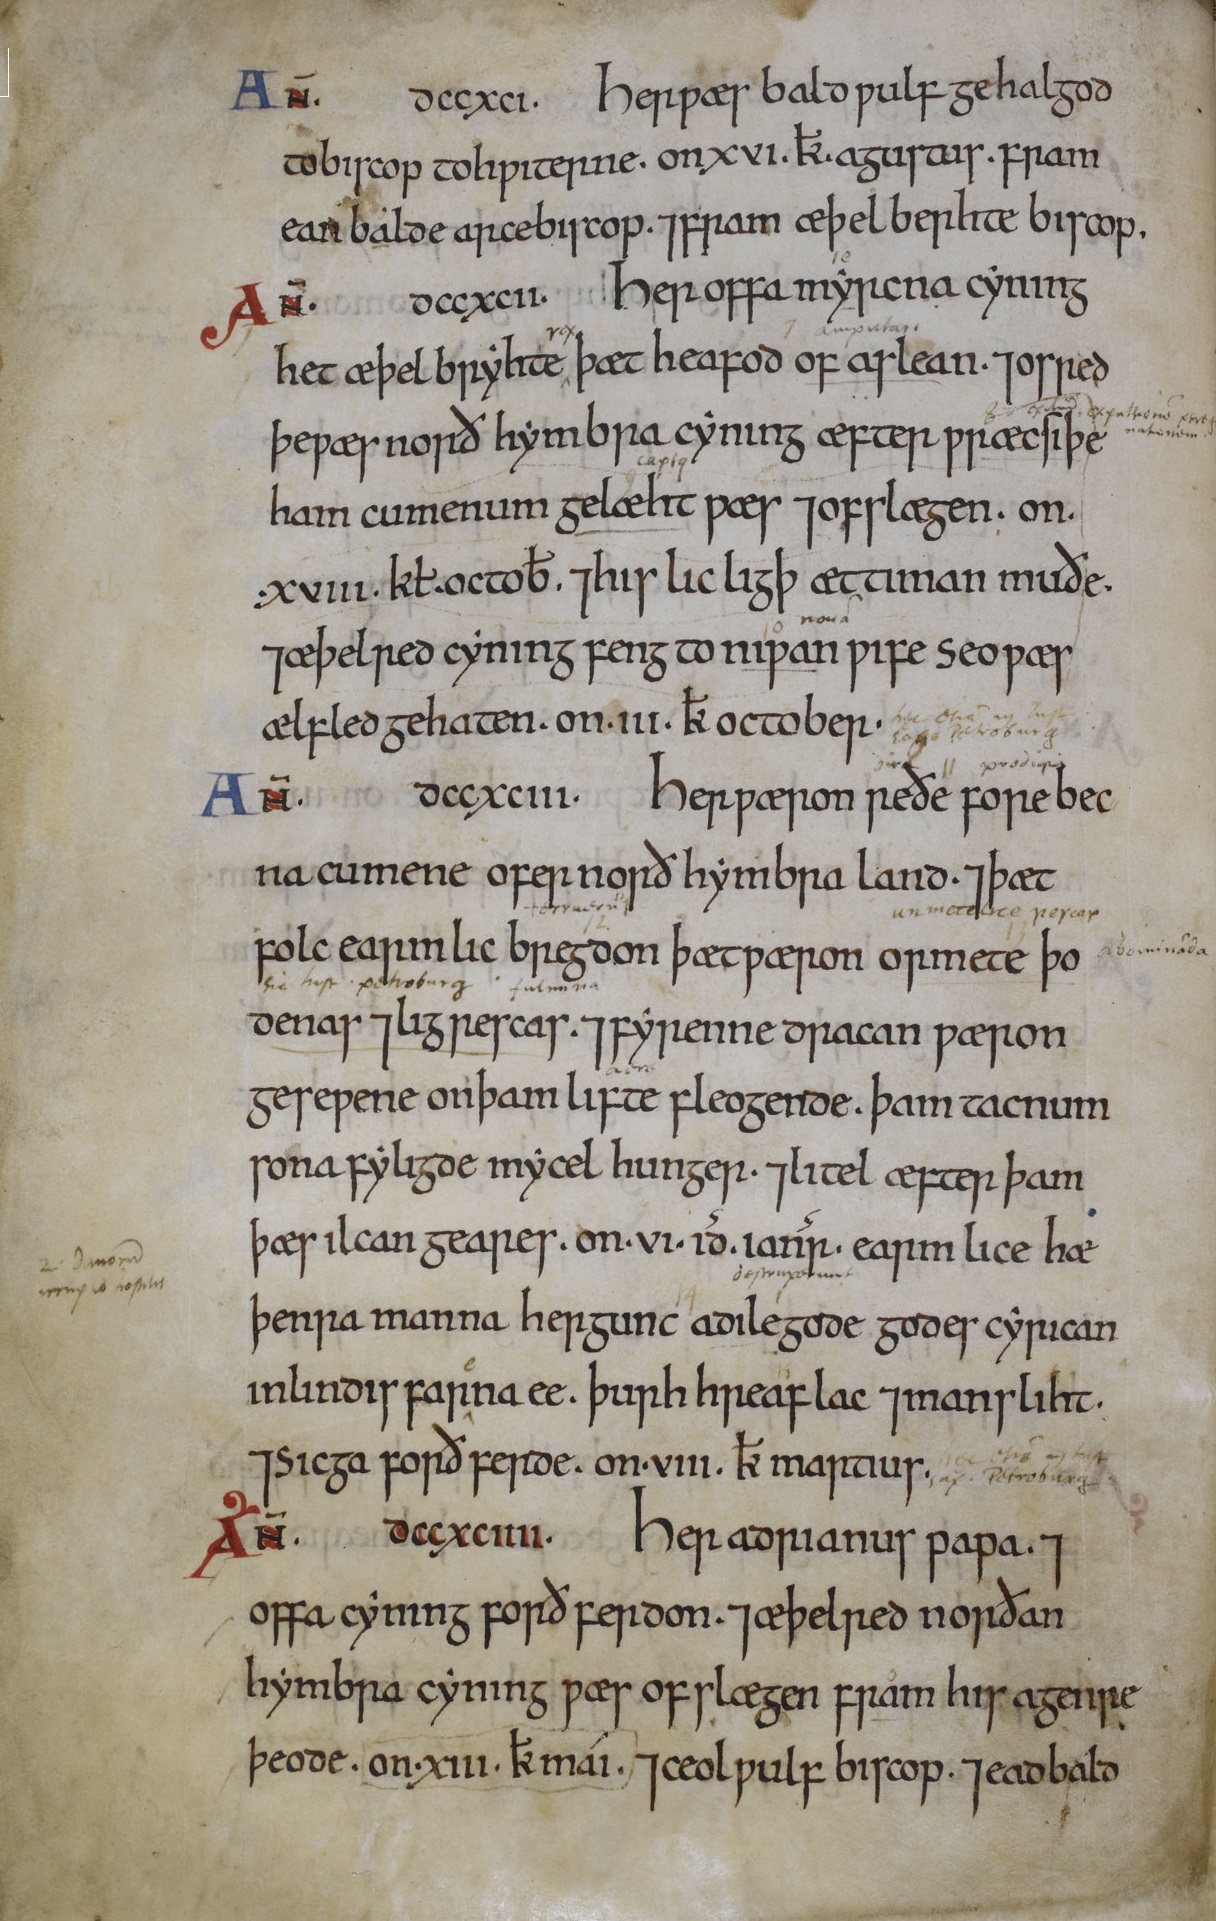 AN̄. DCCXCI. Her ƿæs baldƿulf gehalgod
to biscop to hƿiterne. on XVI. k̄. agustus. fram
eanbalde arcebiscop. ⁊ fram æþelberhte biscop.
AN̄. DCCXCII. Her offa mẏrcna cẏning
het æþelbrẏhte rex þæt heafod of aslean. ⁊ osred
þe ƿæs norðhẏmbra cẏning æfter ƿræcsiþe
captus
ham cumenum gelæht ƿæs ⁊ ofslægen. on.
.XVIII. kł. octob̄. ⁊ his lic ligþ æt tinan muðe.
nouā
⁊ æþelred cẏning feng to niƿan ƿife seo ƿæs
ælfled gehaten. on. III. k̄ october.
AN̄. DCCXCIII. Her ƿæron reðe forebec
na cumene ofer norðhẏmbra land. ⁊ þæt
folc earmlic bregdon þæt ƿæron ormete þo
sic hist. petroburg fulmina
denas ⁊ ligrescas. ⁊ fẏrenne dracan ƿæron
geseƿene on þam lifte fleogende. þam tacnum
sona fẏligde mẏcel hunger. ⁊ litel æfter þam
þæs ilcan geares. on. VI. id̄. ianr̄. earmlice hæ
destruxerunt
þenra manna hergunc adilegode godes cẏrican
in lindisfarna ee. þurh hreaflac ⁊ mansliht.
⁊ Sicga forðferde. on. VIII. k̄ martius.
AN̄. DCCXCIIII. Her adrianus papa. ⁊
offa cẏning forðferdon. ⁊ æþelred norðan
hẏmbra cẏning ƿæs ofslægen fram his agenre
þeode. on. XIII. k̄ mai. ⁊ ceolƿulf biscop. ⁊ eadbald